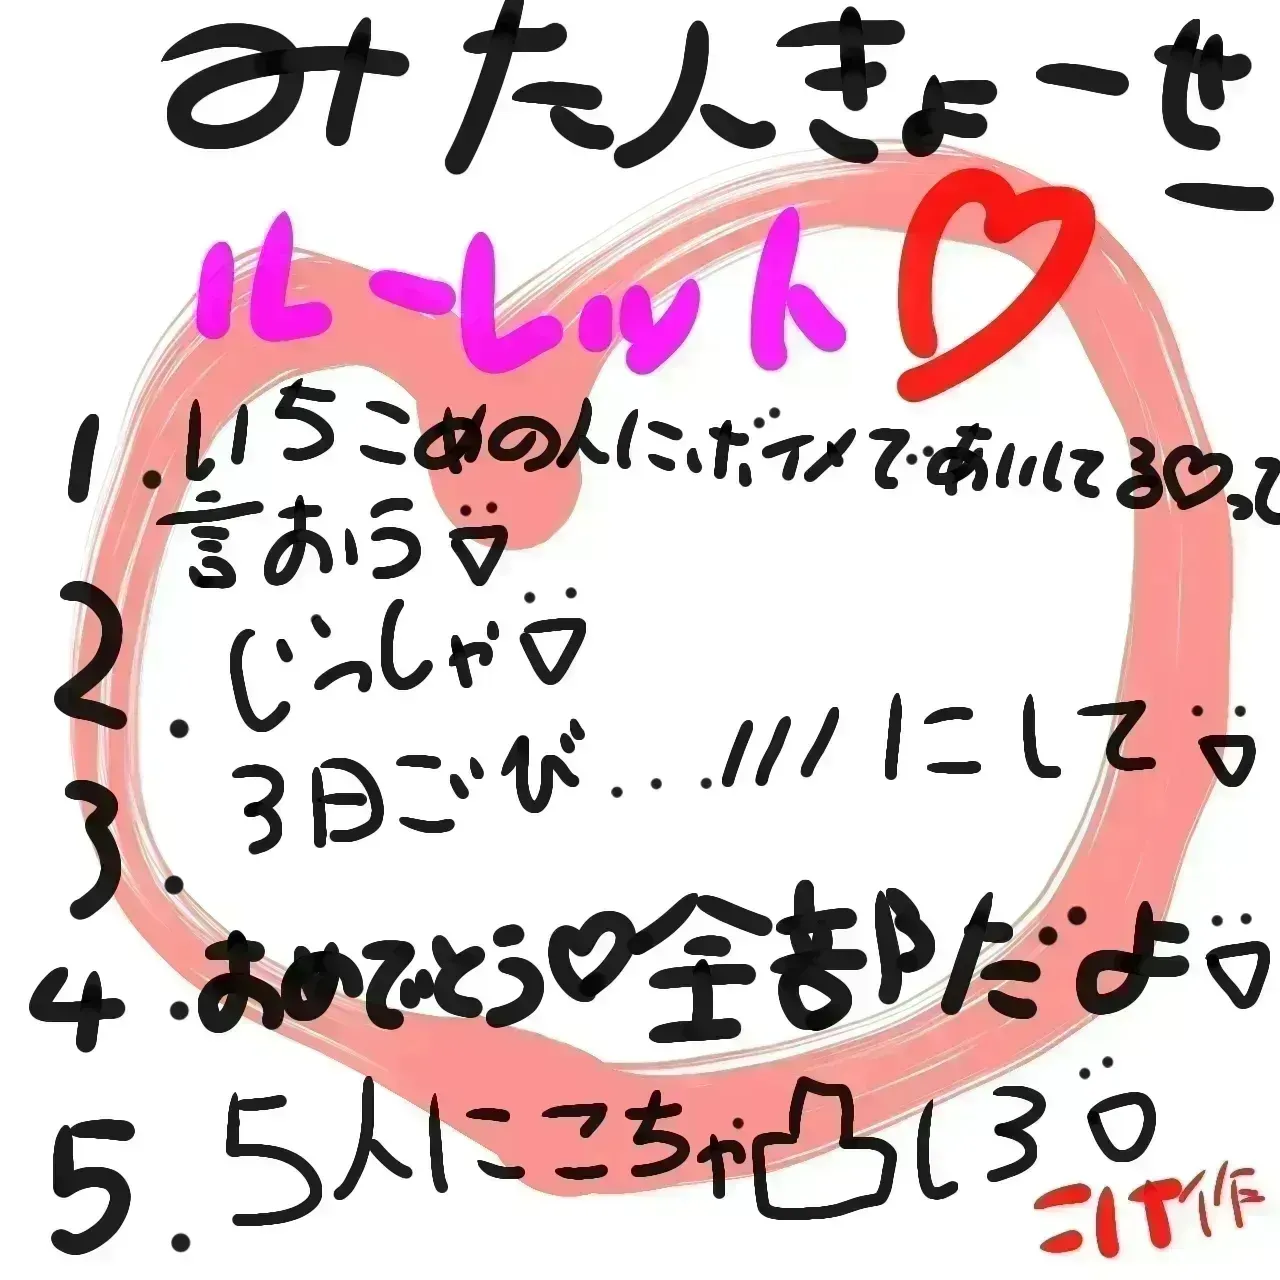 みた人きょーせー
ルーレット♡
1.いちこめの人にボイメであいしてる♡って
言おう
2.じっしゃ
3.3日ごび...///にして
4.おめでとう♡全部だよ
5.5人にこちゃ凸しろ
こけ作